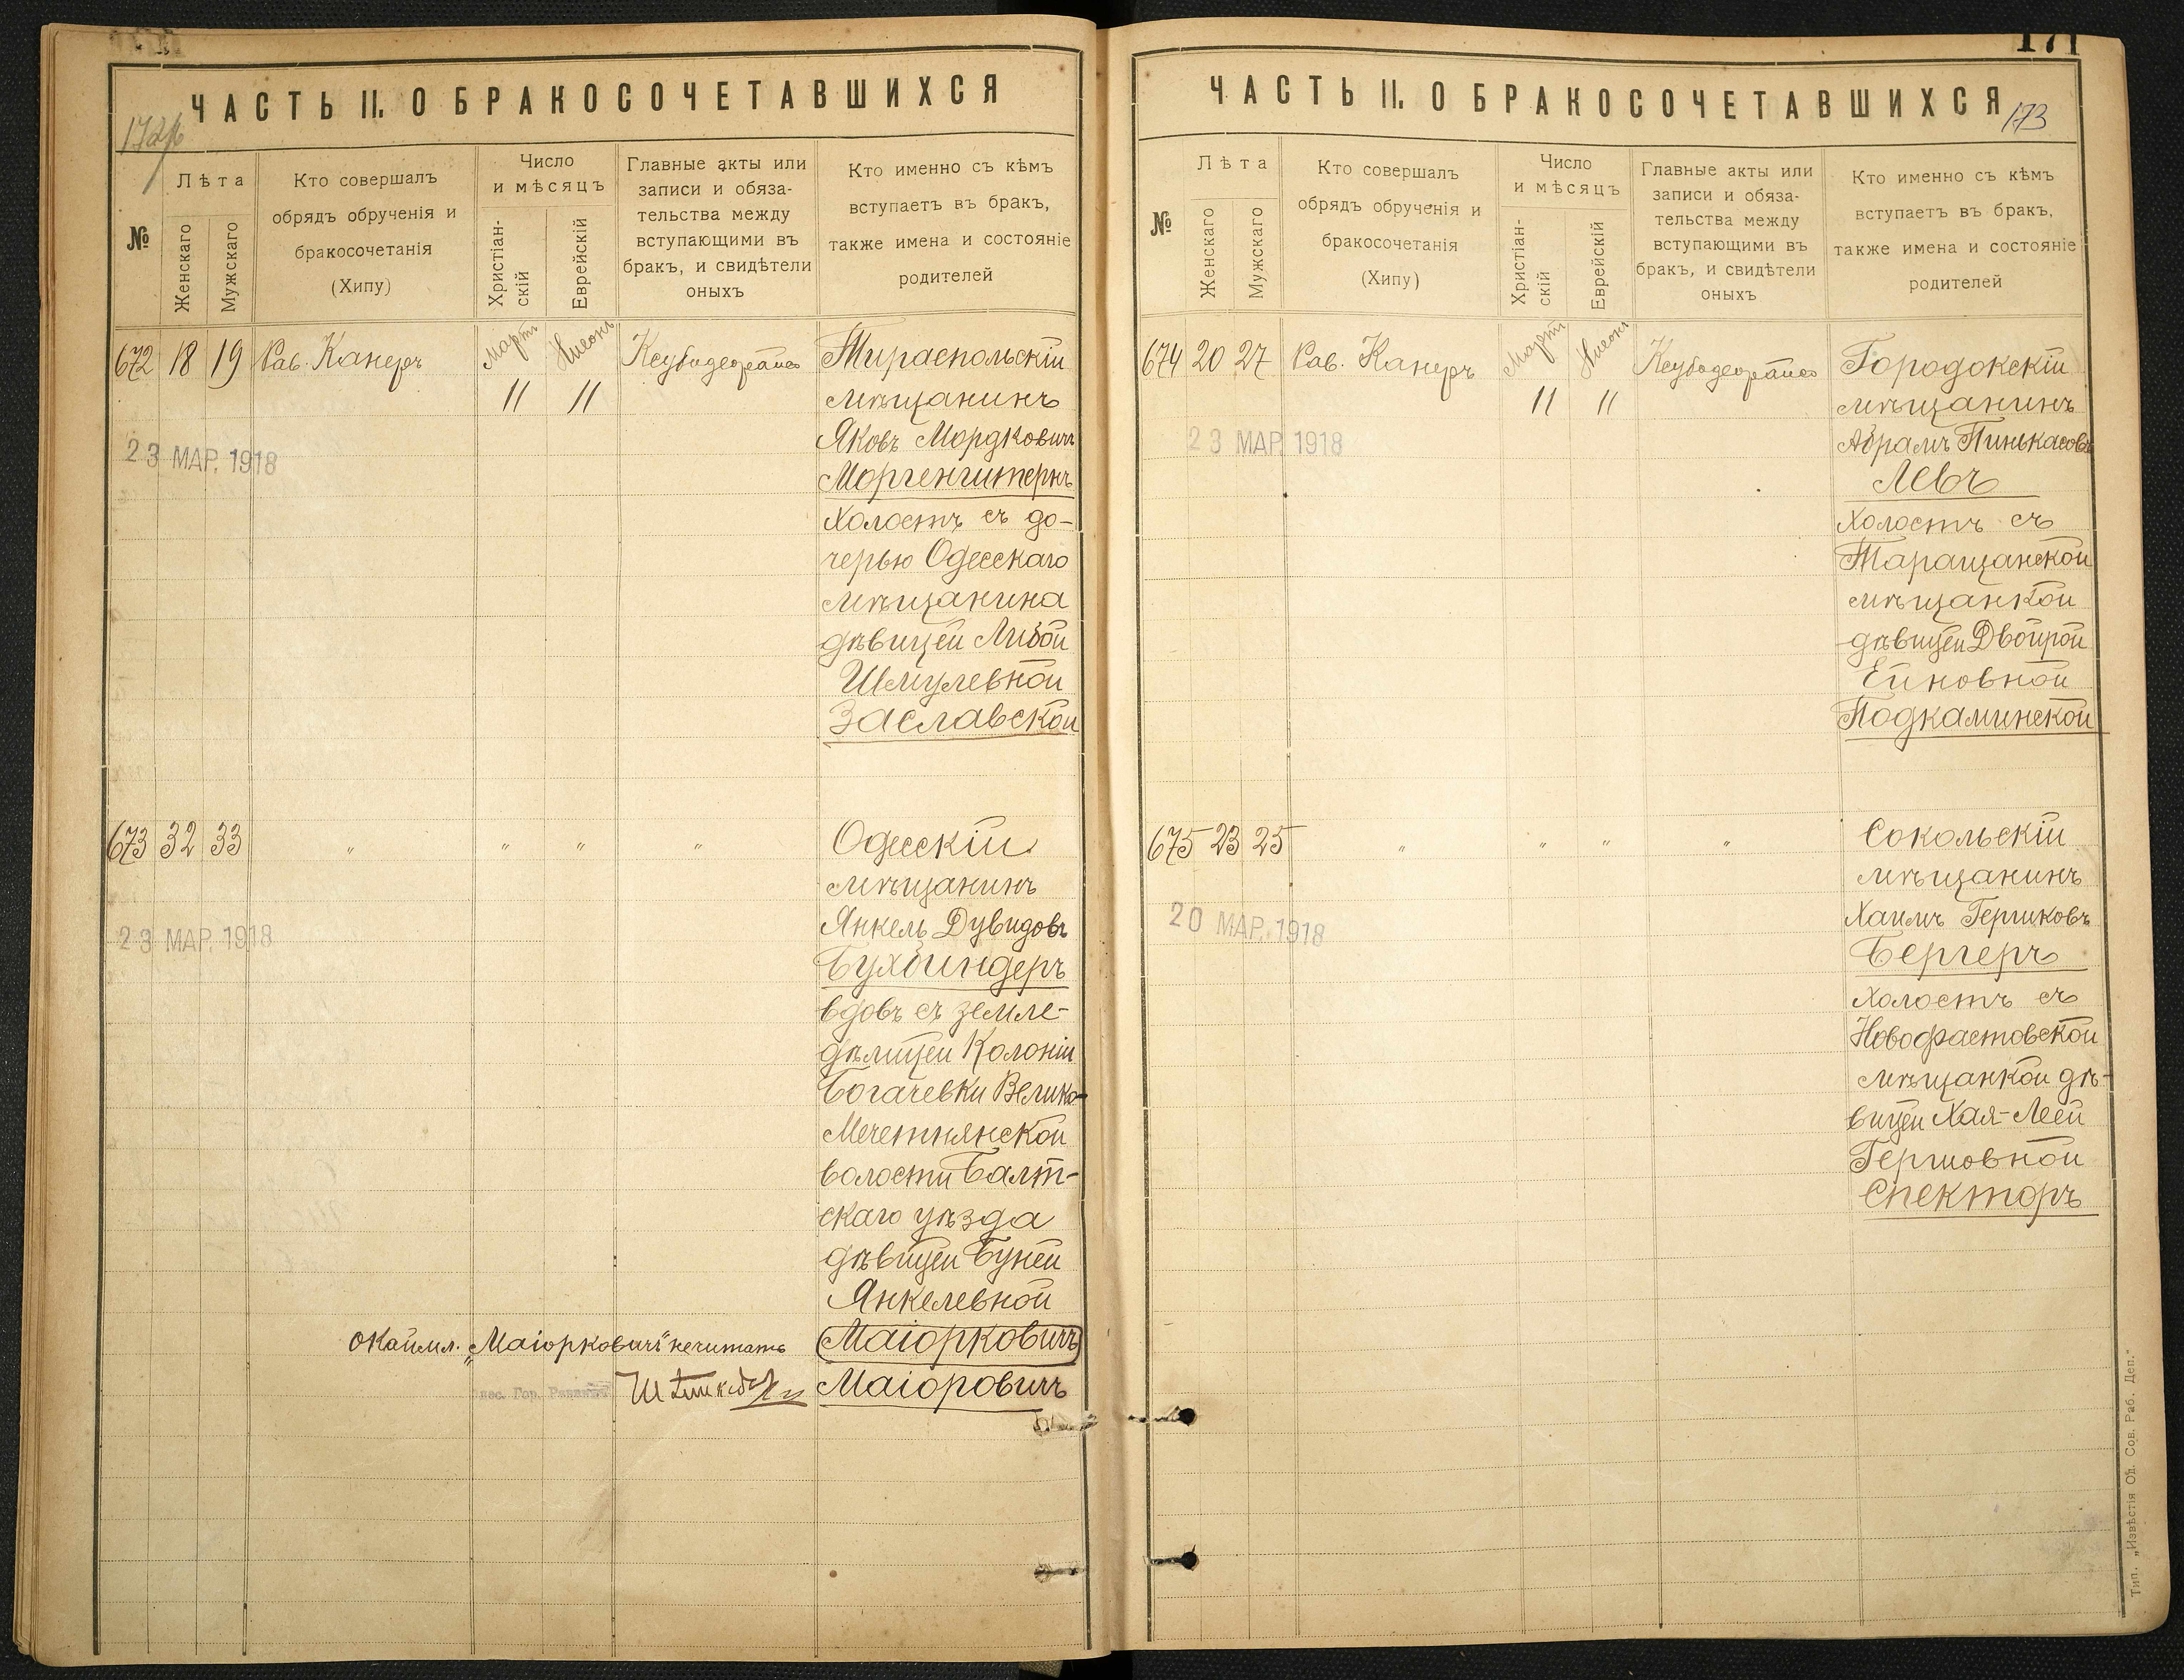 ЧАСТЬ II. О БРАКОСОЧЕТАВШИХСЯ
№
Лѣта
Женскаго
Мужскаго
Кто совершалъ
обрядъ обрученія и
бракосочетанія
(Хипу)
Число
и мѣсяцъ
Христіан-
скій
Еврейскій
Главные акты или
записи и обяза-
тельства между
вступающими въ
бракъ, и свидѣтели
оныхъ
Кто именно съ кѣмъ
вступаетъ въ бракъ,
также имена и состояніе
родителей
672 18 19 Рав. Канеръ Мартъ Нисонъ Тираспольскій
11 11 мѣщанинъ
Яковъ Мордковичъ
23 МАР. 1918
Моргенштернъ
холостъ съ до-
черью Одесскаго
мѣщанина
дѣвицей Либой
Шмулевной
Заславской
673 32 33 " " " " Одесскій
мѣщанинъ
Янкель Дувидовъ
23 МАР. 1918
Бухбиндеръ
вдовъ съ земле-
дѣлицей Колоніи
Богачевки Велико-
Мечетнянской
волости Балт-
скаго уѣзда
дѣвицей Буней
Янкелевной
окаймл. „Маіорковичъ" нечитать Маіорковичъ
Маіоровичъ
171
ЧАСТЬ II. О БРАКОСОЧЕТАВШИХСЯ
173
№
Лѣта
Женскаго
Мужскаго
Кто совершалъ
обрядъ обрученія и
бракосочетанія
(Хипу)
Число
и мѣсяцъ
Христіан-
скій
Еврейскій
Главные акты или
записи и обяза-
тельства между
вступающими въ
бракъ, и свидѣтели
оныхъ
Кто именно съ кѣмъ
вступаетъ въ бракъ,
также имена и состояніе
родителей
674 20 27 Рав. Канеръ Мартъ Нисонъ Городокскій
11 11 мѣщанинъ
23 МАР. 1918
Абрамъ Пинькасовъ
Левъ
холостъ съ
Таращанской
мѣщанкой
дѣвицей Двойрой
Ейновной
Подкаминской
675 23 25 " " " " Сокольскій
мѣщанинъ
20 МАР. 1918
Хаимъ Гершковъ
Бергеръ
холостъ съ
Новофастовской
мѣщанкой дѣ-
вицей Хая-Леей
Гершовной
Спекторъ
Тип. „Извѣстія Од. Сов. Раб. Деп."